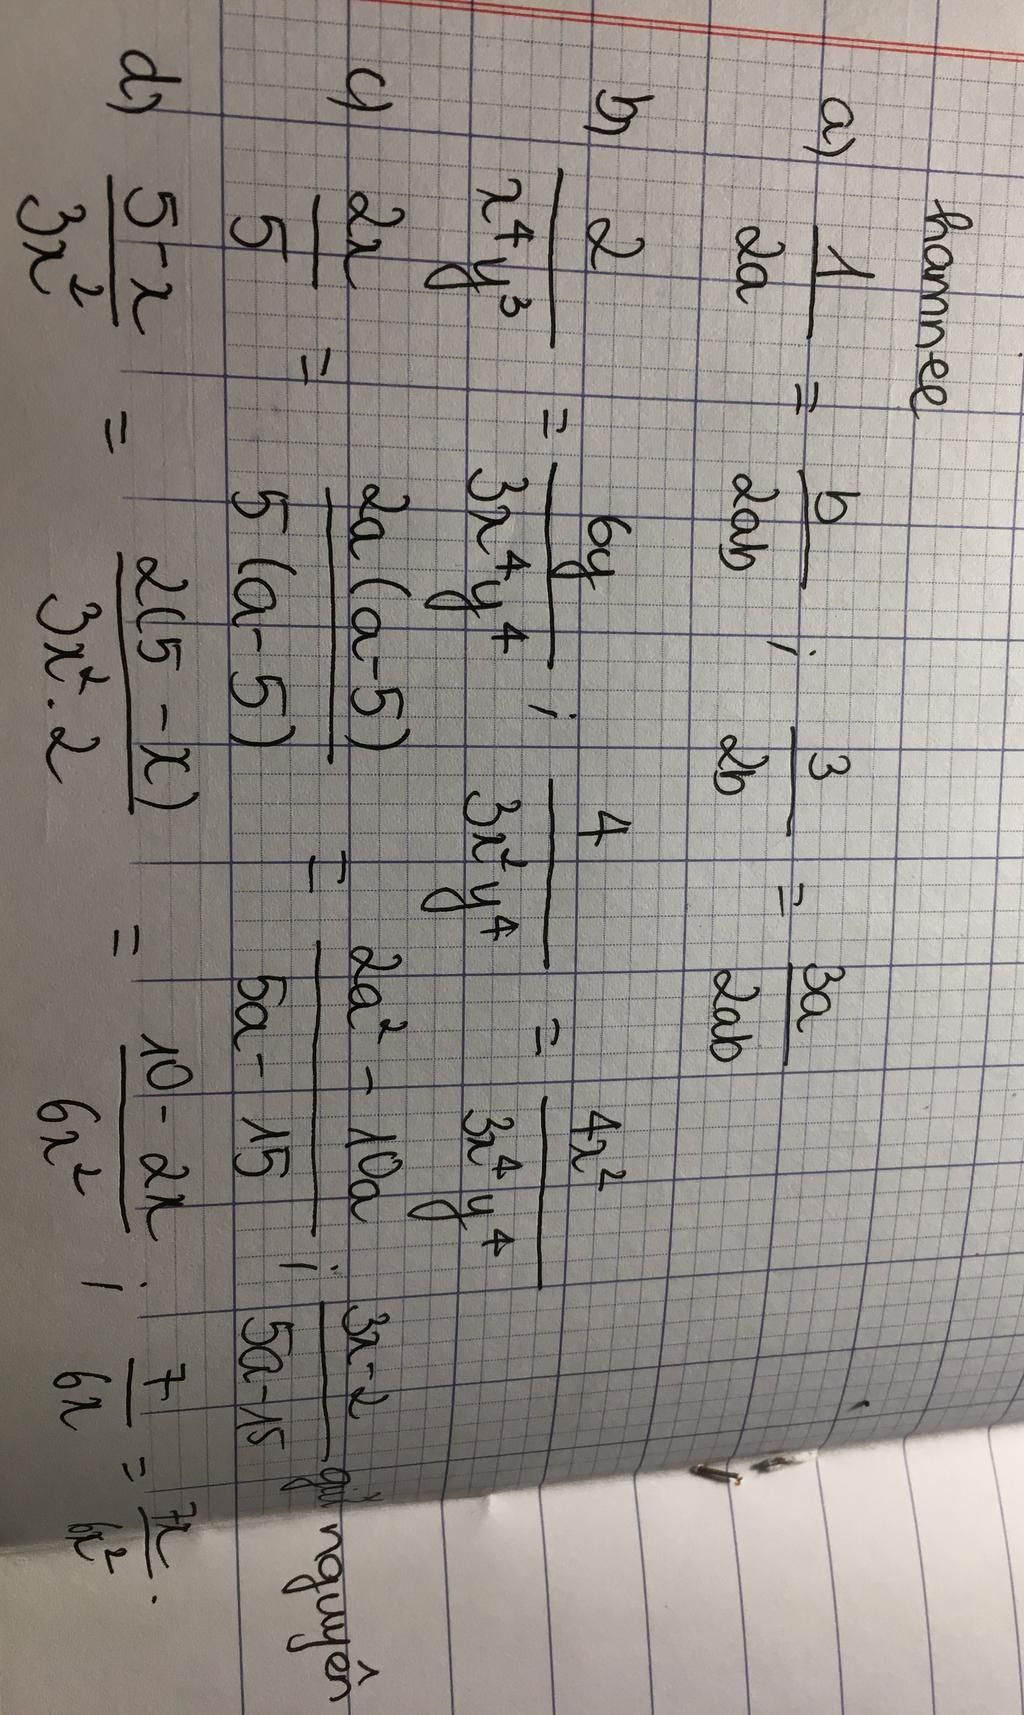 hamnee
a) 1/2a = b/2ab ; 3/2b = 3a/2ab
b) 2/x⁴y³ = 6y/3x⁴y⁴ ; 4/3x²y⁴ = 4x²/3x⁴y⁴
c) 2x/5 = 2a(a-5)/5(a-5) = 2a²-10a/5a-15 ; 3x-2/5a-15 giữ nguyên
d) 5-x/3x² = 2(5-x)/3x².2 = 10-2x/6x² ; 7/6x = 7x/6x² .